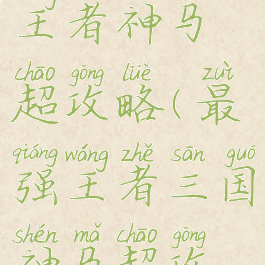 王者神马
chāo gōng lüè zuì
超攻略(最
qiáng wáng zhě sān guó
强王者三国
shén mǎ chāo gōng
神马超攻